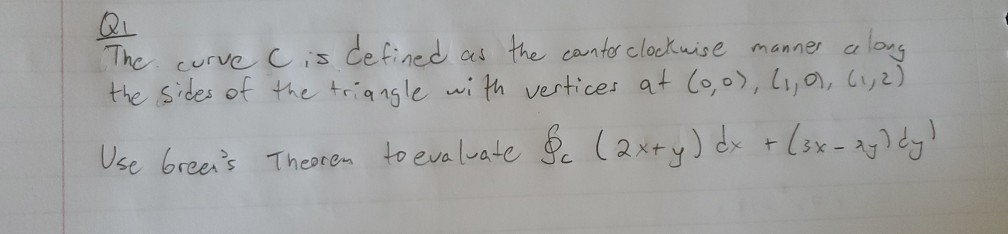 Q1
The curve C is defined as the counterclockwise manner along
the sides of the triangle with vertices at (0,0), (1,0), (1,2)
Use Green's Theorem to evaluate ∮c (2x+y) dx + (3x - 2y) dy)